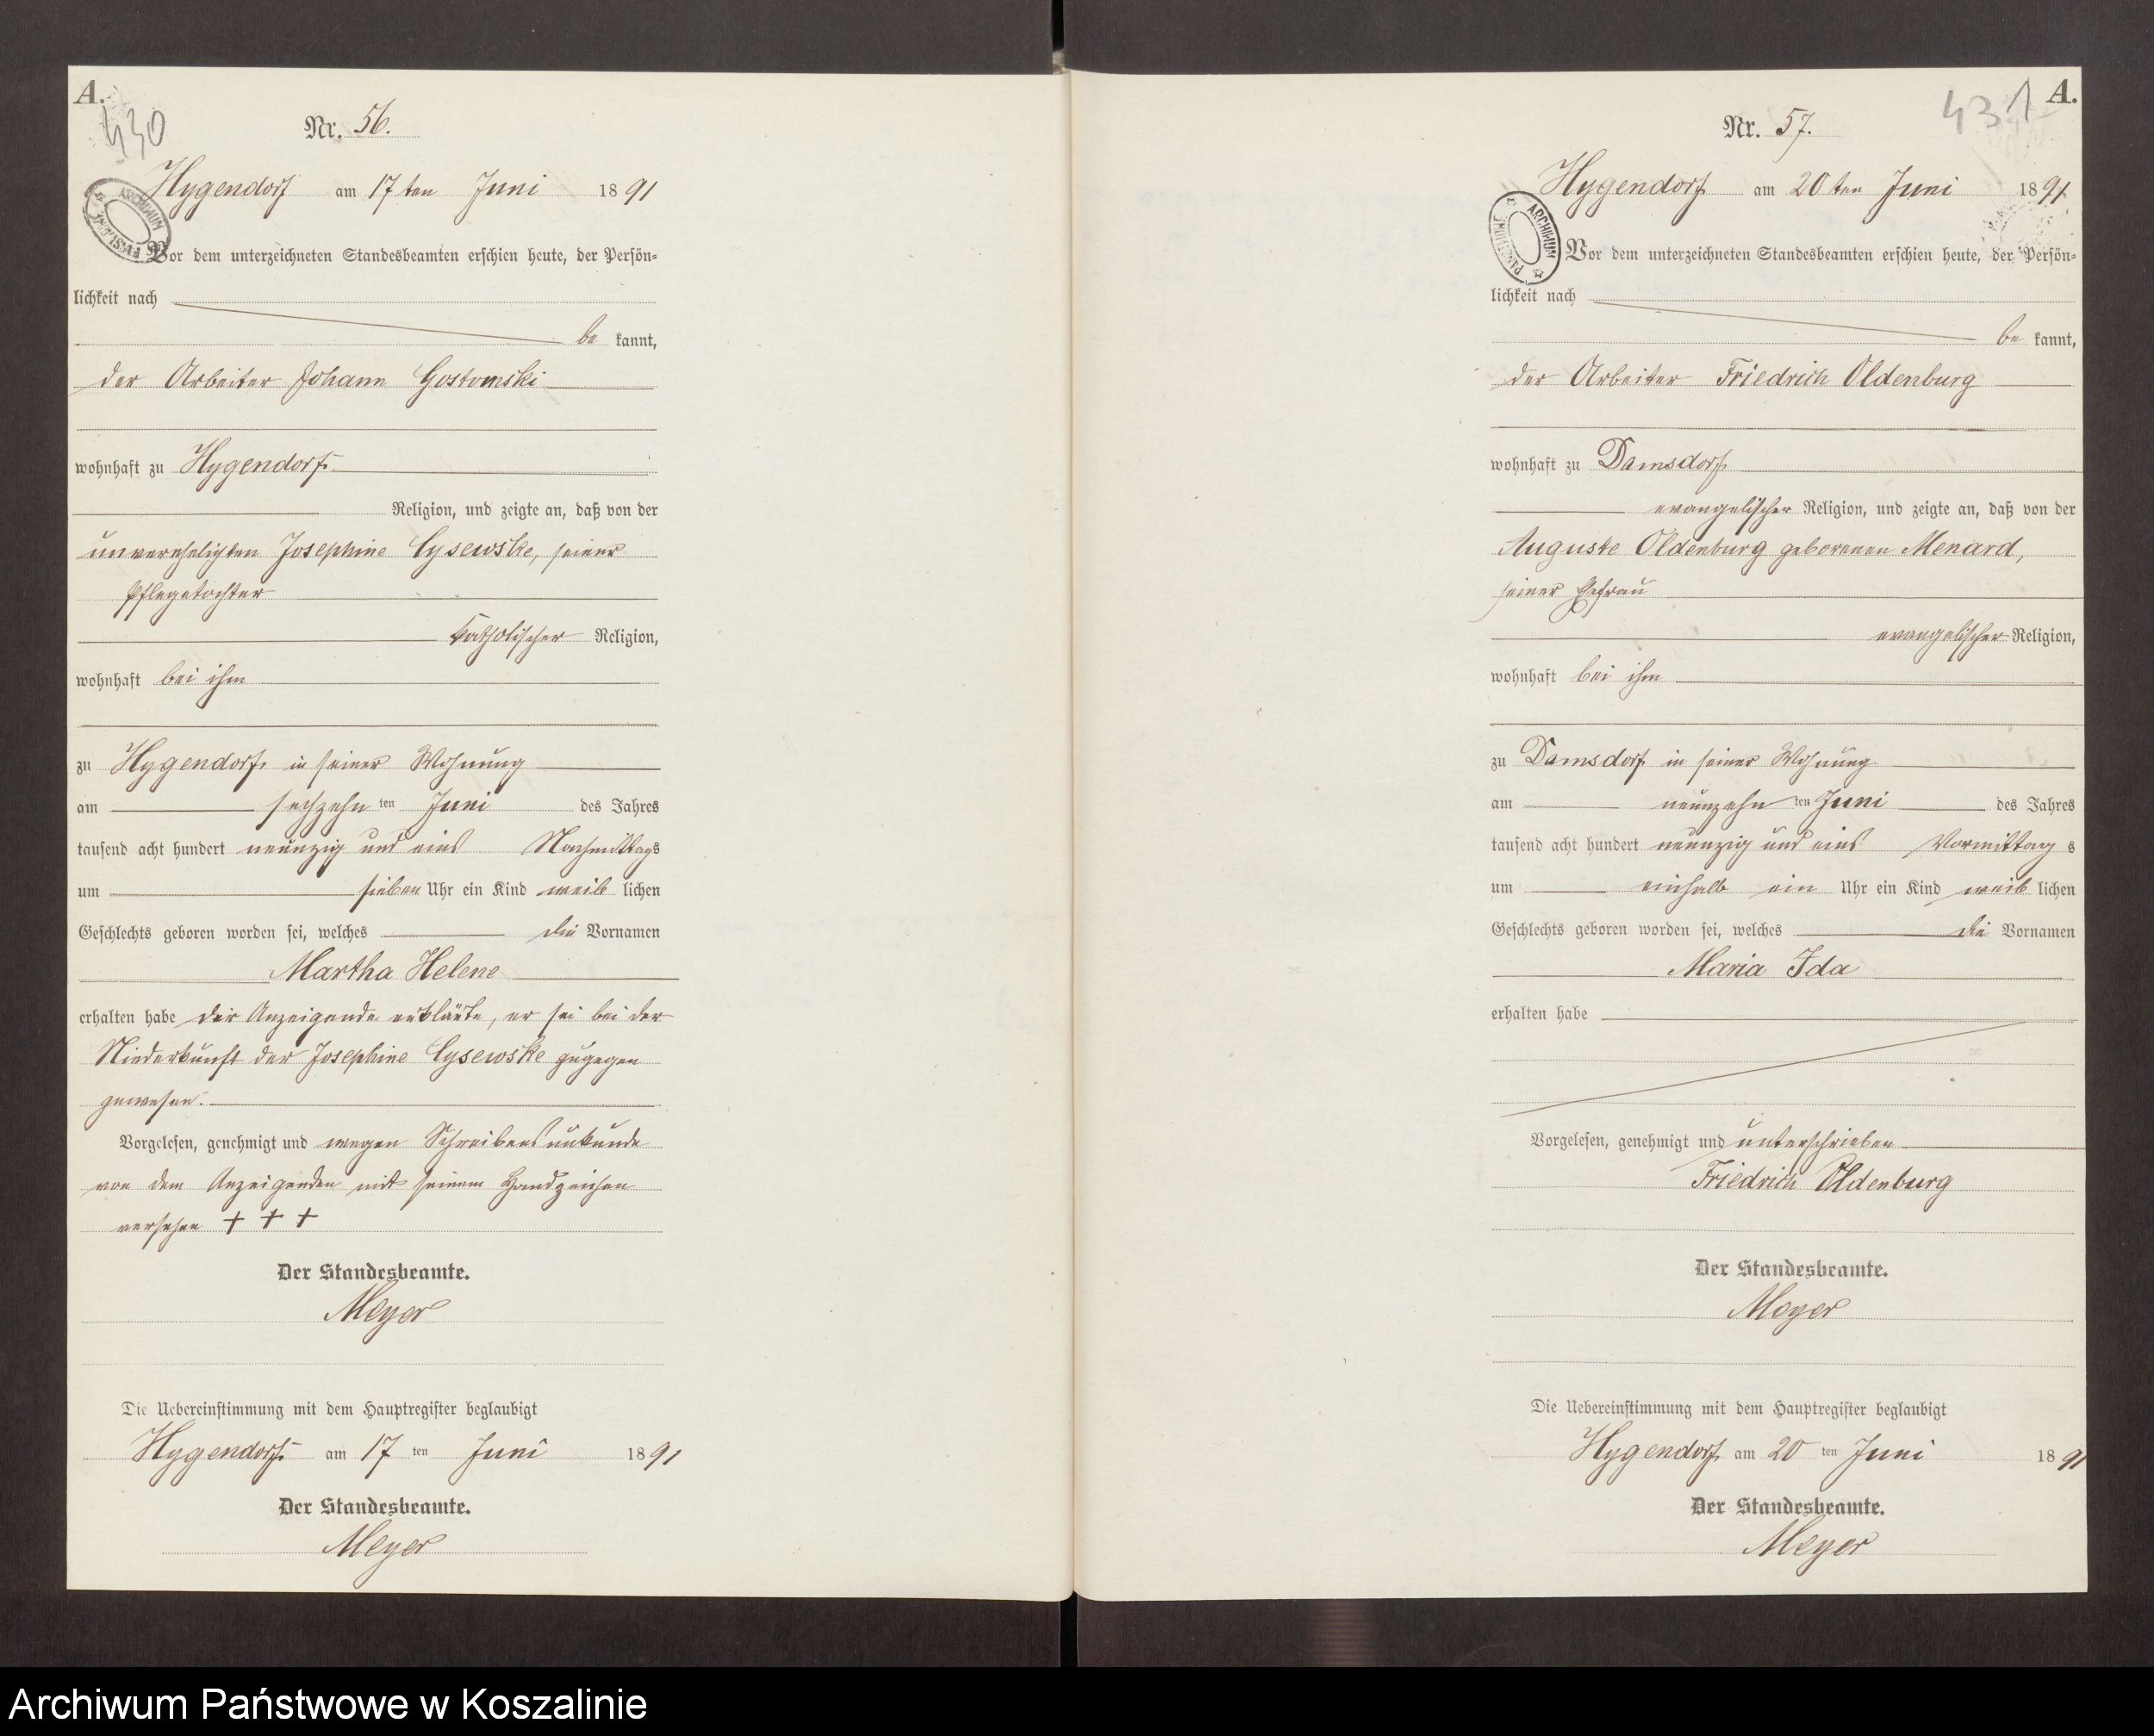 A.
430
Nr. 56.
Hygendorf am 17ten Juni 1891
ARCHIWUM PAŃSTWOWE
Vor dem unterzeichneten Standesbeamten erschien heute, der Persön=
lichkeit nach
be kannt,
der Arbeiter Johann Gostomski
wohnhaft zu Hygendorf
Religion, und zeigte an, daß von der
unverehelichten Josephine Cysewske, seiner
Pflegetochter
katholischer Religion,
wohnhaft bei ihm
zu Hygendorf in seiner Wohnung
am sechzehn ten Juni des Jahres
tausend acht hundert neunzig und eins Nachmittags
um sieben Uhr ein Kind weib lichen
Geschlechts geboren worden sei, welches die Vornamen
Martha Helene
erhalten habe Der Anzeigende erklärte, er sei bei der
Niederkunft der Josephine Cysewske zugegen
gewesen.
Vorgelesen, genehmigt und wegen Schreibensunkunde
von dem Anzeigenden mit seinem Handzeichen
versehen + + +
Der Standesbeamte.
Meyer
Die Uebereinstimmung mit dem Hauptregister beglaubigt
Hygendorf am 17 ten Juni 1891
Der Standesbeamte.
Meyer
A.
431
Nr. 57.
Hygendorf am 20ten Juni 1891
ARCHIWUM PAŃSTWOWE
Vor dem unterzeichneten Standesbeamten erschien heute, der Persön=
lichkeit nach
be kannt,
der Arbeiter Friedrich Oldenburg
wohnhaft zu Damsdorf
evangelischer Religion, und zeigte an, daß von der
Auguste Oldenburg geborenen Menard,
seiner Ehefrau
evangelischer Religion,
wohnhaft bei ihm
zu Damsdorf in seiner Wohnung
am neunzehn ten Juni des Jahres
tausend acht hundert neunzig und eins Vormittag s
um einhalb ein Uhr ein Kind weib lichen
Geschlechts geboren worden sei, welches die Vornamen
Maria Ida
erhalten habe
Vorgelesen, genehmigt und unterschrieben
Friedrich Oldenburg
Der Standesbeamte.
Meyer
Die Uebereinstimmung mit dem Hauptregister beglaubigt
Hygendorf am 20 ten Juni 1891
Der Standesbeamte.
Meyer
Archiwum Państwowe w Koszalinie